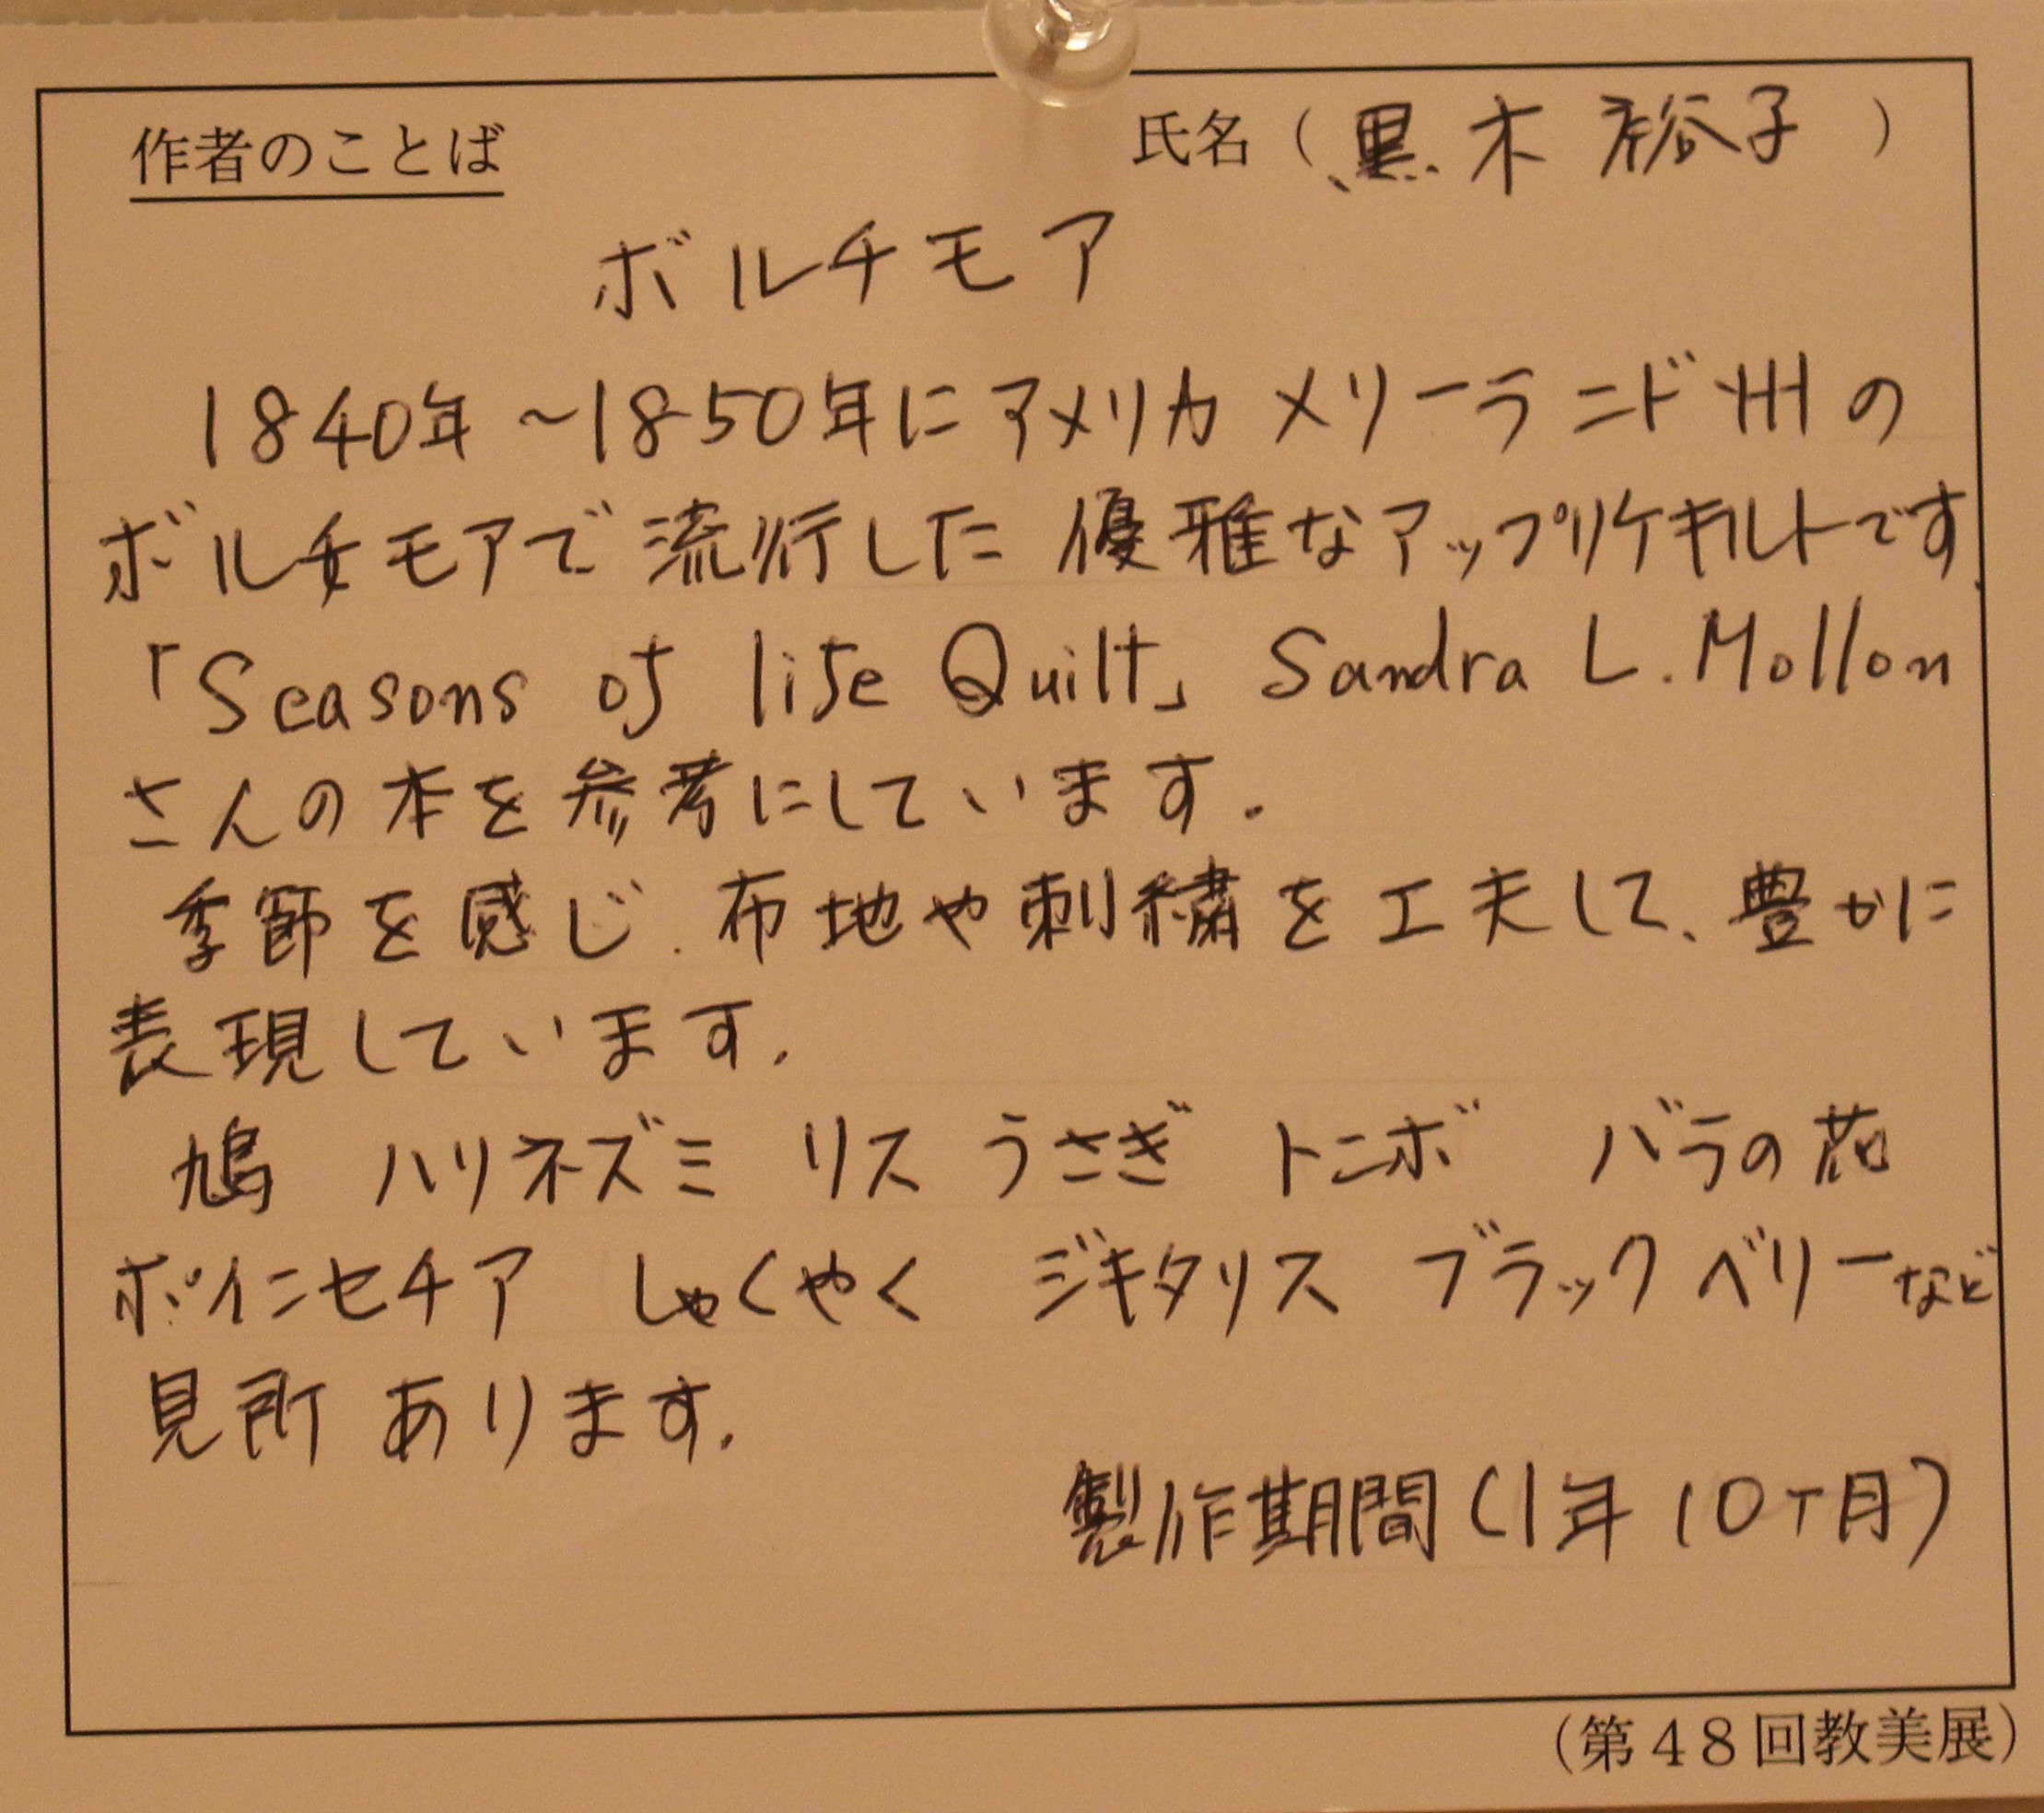 作者のことば　氏名（黒木裕子）
ボルチモア
1840年～1850年にアメリカ メリーランド州の
ボルチモアで流行した 優雅なアップリケキルトです.
「Seasons of life Quilt」 Sandra L. Mollon
さんの本を参考にしています.
季節を感じ. 布地や刺繍を工夫して、豊かに
表現しています.
鳩　ハリネズミ　リス　うさぎ　トンボ　バラの花
ポインセチア　しゃくやく　ジキタリス　ブラックベリーなど
見所あります.
製作期間（1年10ヶ月）
（第48回教美展）